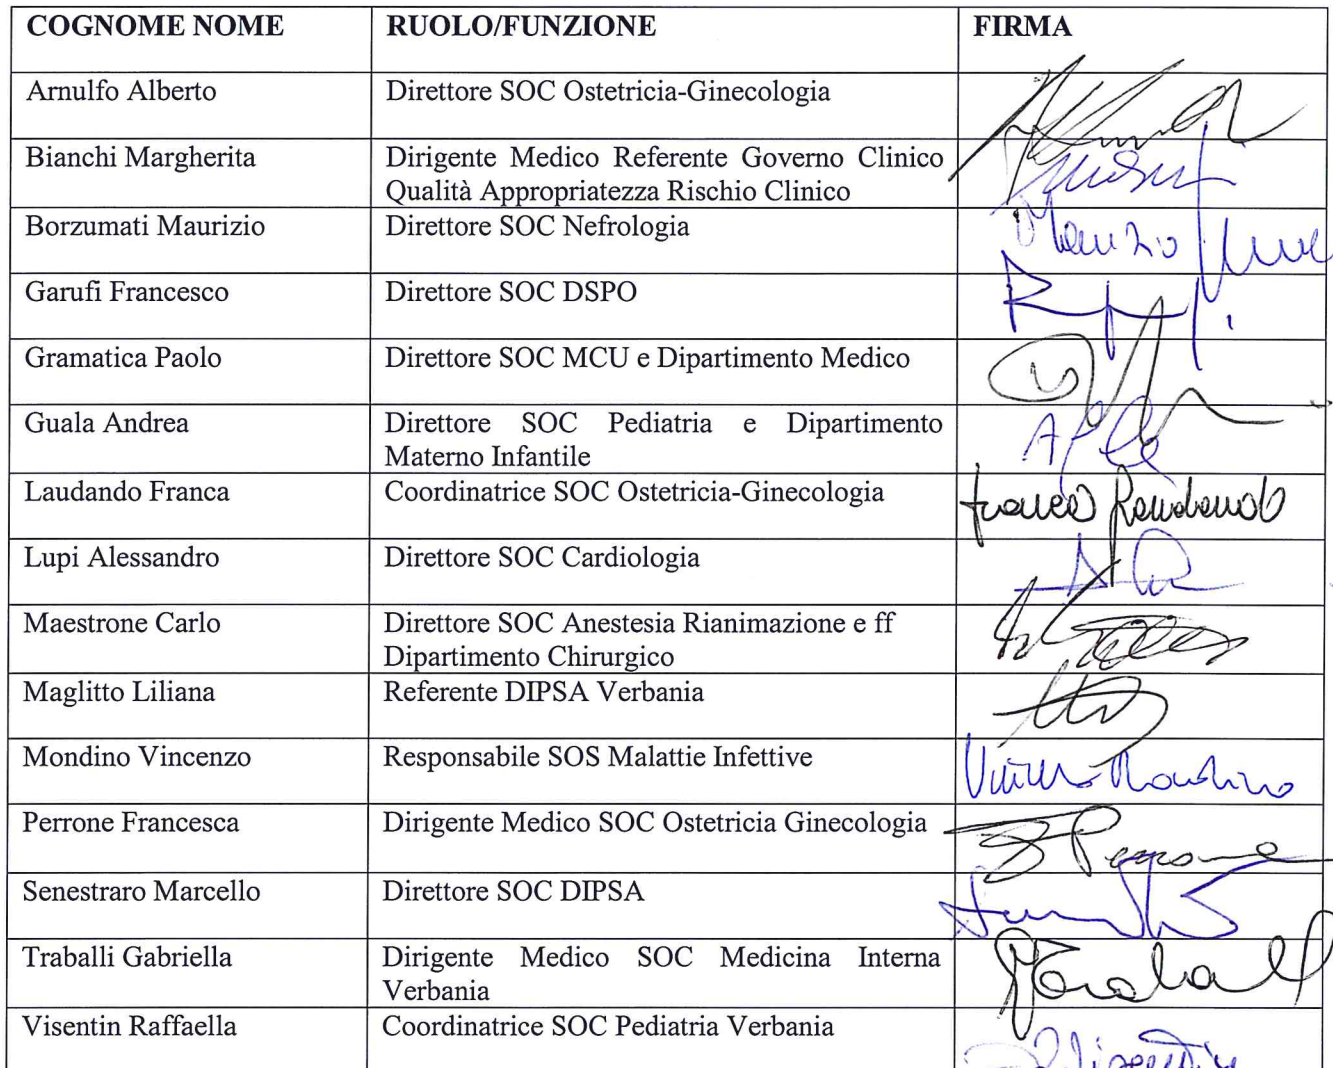 COGNOME NOME RUOLO/FUNZIONE FIRMA
Arnulfo Alberto Direttore SOC Ostetricia-Ginecologia
Bianchi Margherita Dirigente Medico Referente Governo Clinico
Qualità Appropriatezza Rischio Clinico
Borzumati Maurizio Direttore SOC Nefrologia Maurizio
Garufi Francesco Direttore SOC DSPO
Gramatica Paolo Direttore SOC MCU e Dipartimento Medico
Guala Andrea Direttore SOC Pediatria e Dipartimento
Materno Infantile
Laudando Franca Coordinatrice SOC Ostetricia-Ginecologia Franca Laudando
Lupi Alessandro Direttore SOC Cardiologia
Maestrone Carlo Direttore SOC Anestesia Rianimazione e ff
Dipartimento Chirurgico
Maglitto Liliana Referente DIPSA Verbania
Mondino Vincenzo Responsabile SOS Malattie Infettive Vincenzo Mondino
Perrone Francesca Dirigente Medico SOC Ostetricia Ginecologia Perrone
Senestraro Marcello Direttore SOC DIPSA
Traballi Gabriella Dirigente Medico SOC Medicina Interna
Verbania
Visentin Raffaella Coordinatrice SOC Pediatria Verbania Visentin